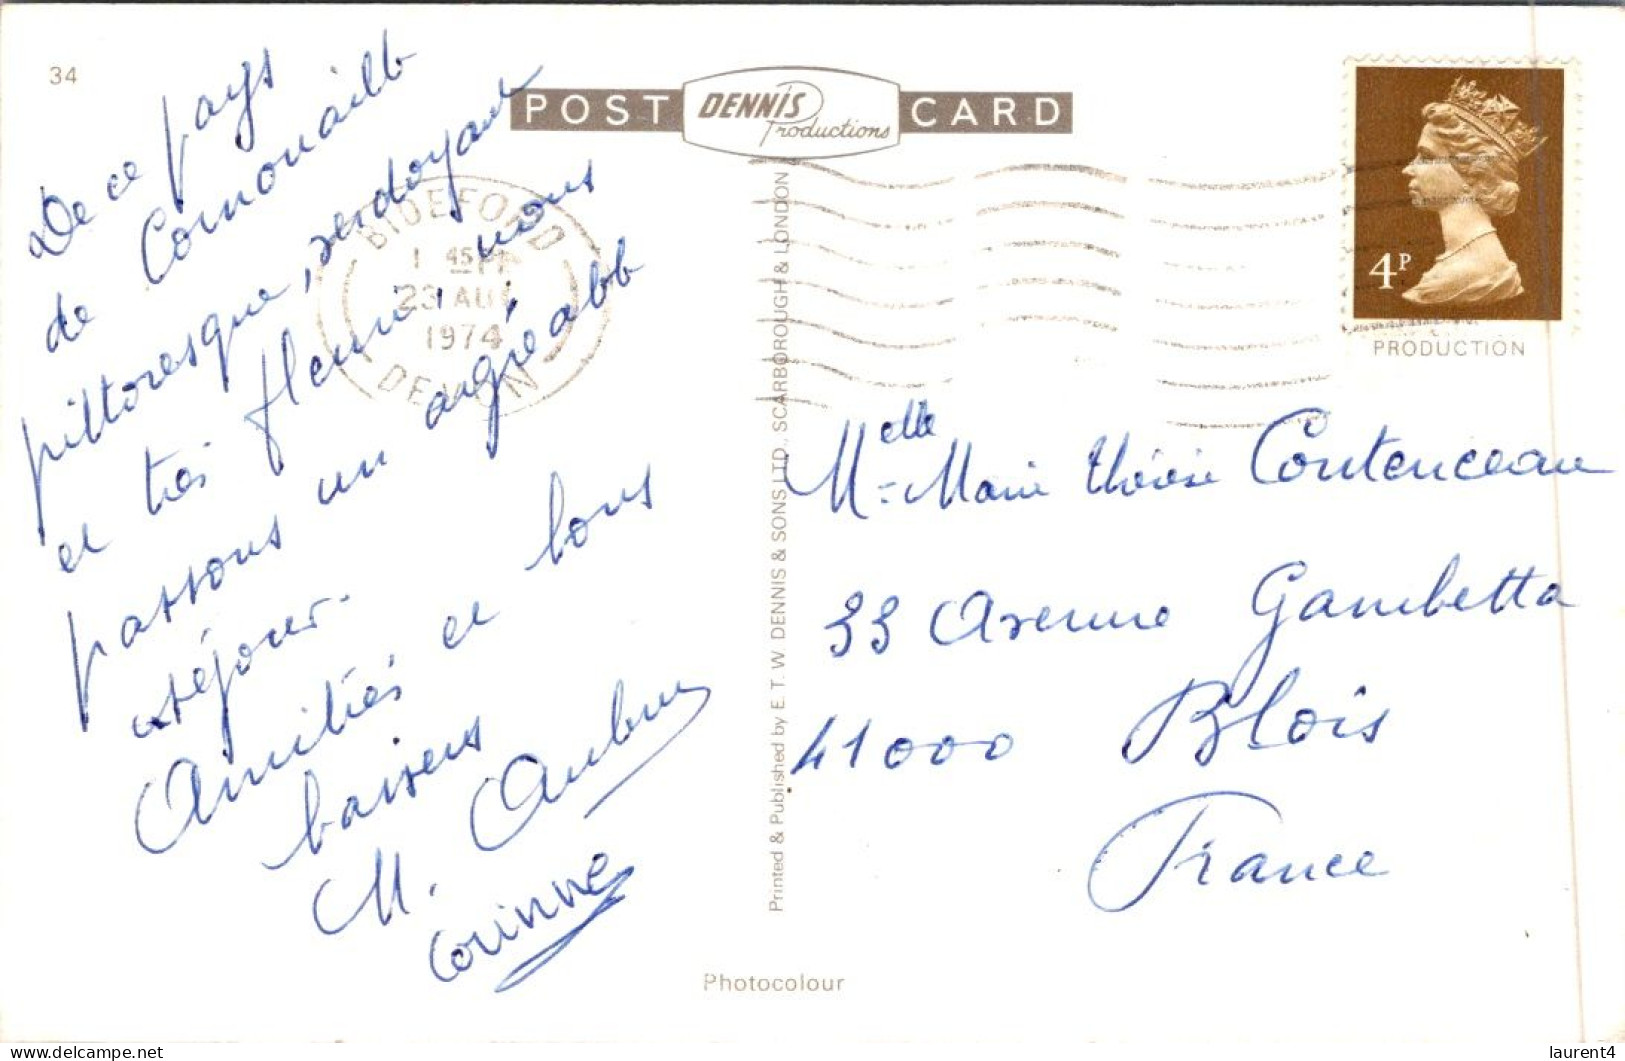 34
POST DENNIS Productions CARD
De ce pays
de Cornouaille
pittoresque, verdoyant
et très fleuri, nous
passons un agréable
séjour.
Amitiés et bons
baisers
M. Aubry
Corinne
BIDEFORD
1 45 PM
23 AUG
1974
DEVON
4P
PRODUCTION
Printed & Published by E. T. W. DENNIS & SONS LTD., SCARBOROUGH & LONDON
Melle Marie Thérèse Contenceau
33 Avenue Gambetta
41000 Blois
France
Photocolour
laurent4